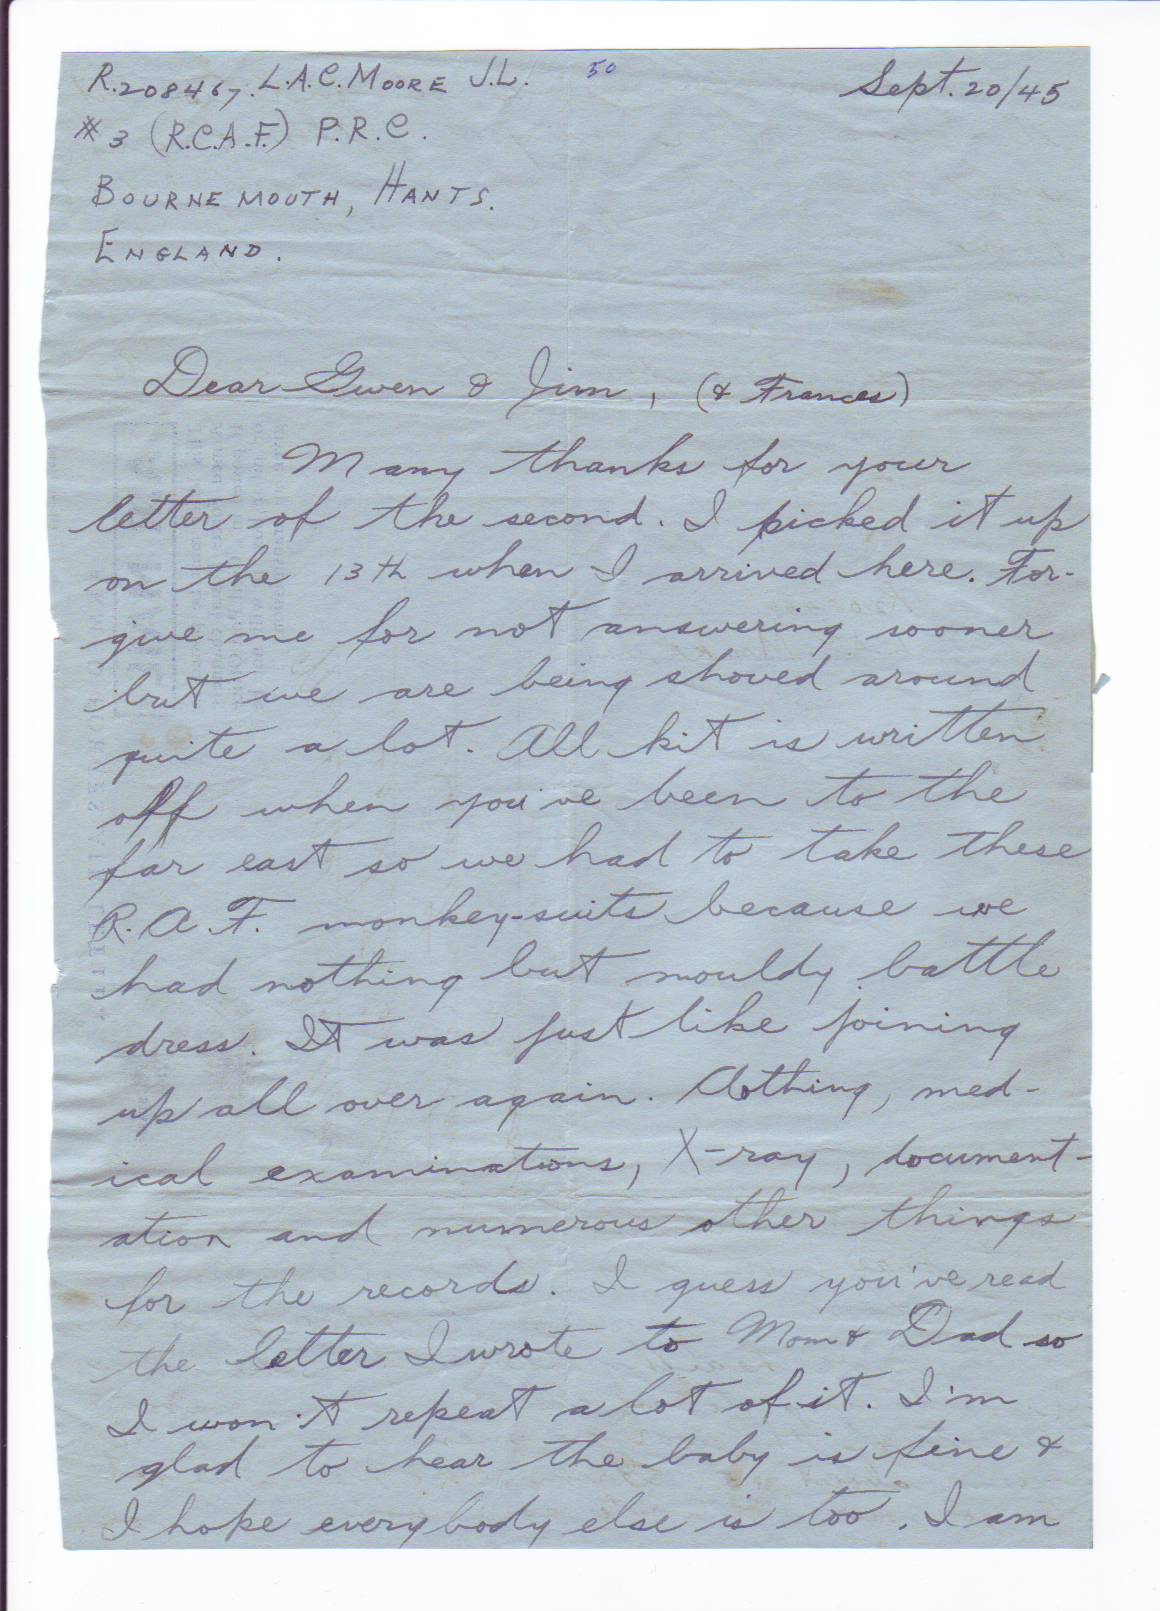 R.208467. L.A.C. MOORE J.L. 50 Sept. 20/45
# 3 (R.C.A.F.) P.R.C.
BOURNEMOUTH, HANTS.
ENGLAND.
Dear Gwen & Jim, (& Frances)
Many thanks for your
letter of the second. I picked it up
on the 13th when I arrived here. For-
give me for not answering sooner
but we are being shoved around
quite a lot. All kit is written
off when you've been to the
far east so we had to take these
R.A.F. monkey-suits because we
had nothing but mouldy battle
dress. It was just like joining
up all over again. Clothing, med-
ical examinations, X-ray, document-
ation and numerous other things
for the records. I guess you've read
the letter I wrote to Mom & Dad so
I won't repeat a lot of it. I'm
glad to hear the baby is fine &
I hope everybody else is too. I am